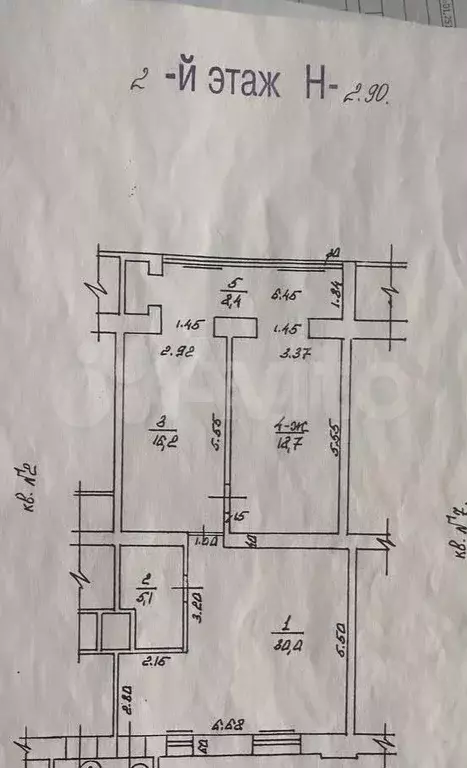 2 -й этаж Н- 2.90.
5
8,4
6.45
1.84
1.45
1.45
2.92
3.37
3
16,2
5.55
4-ж
18,7
5.55
кв. №2
кв. №7
15
1.00
2
5,1
3.20
1
30,0
5.50
2.15
2.80
6.68